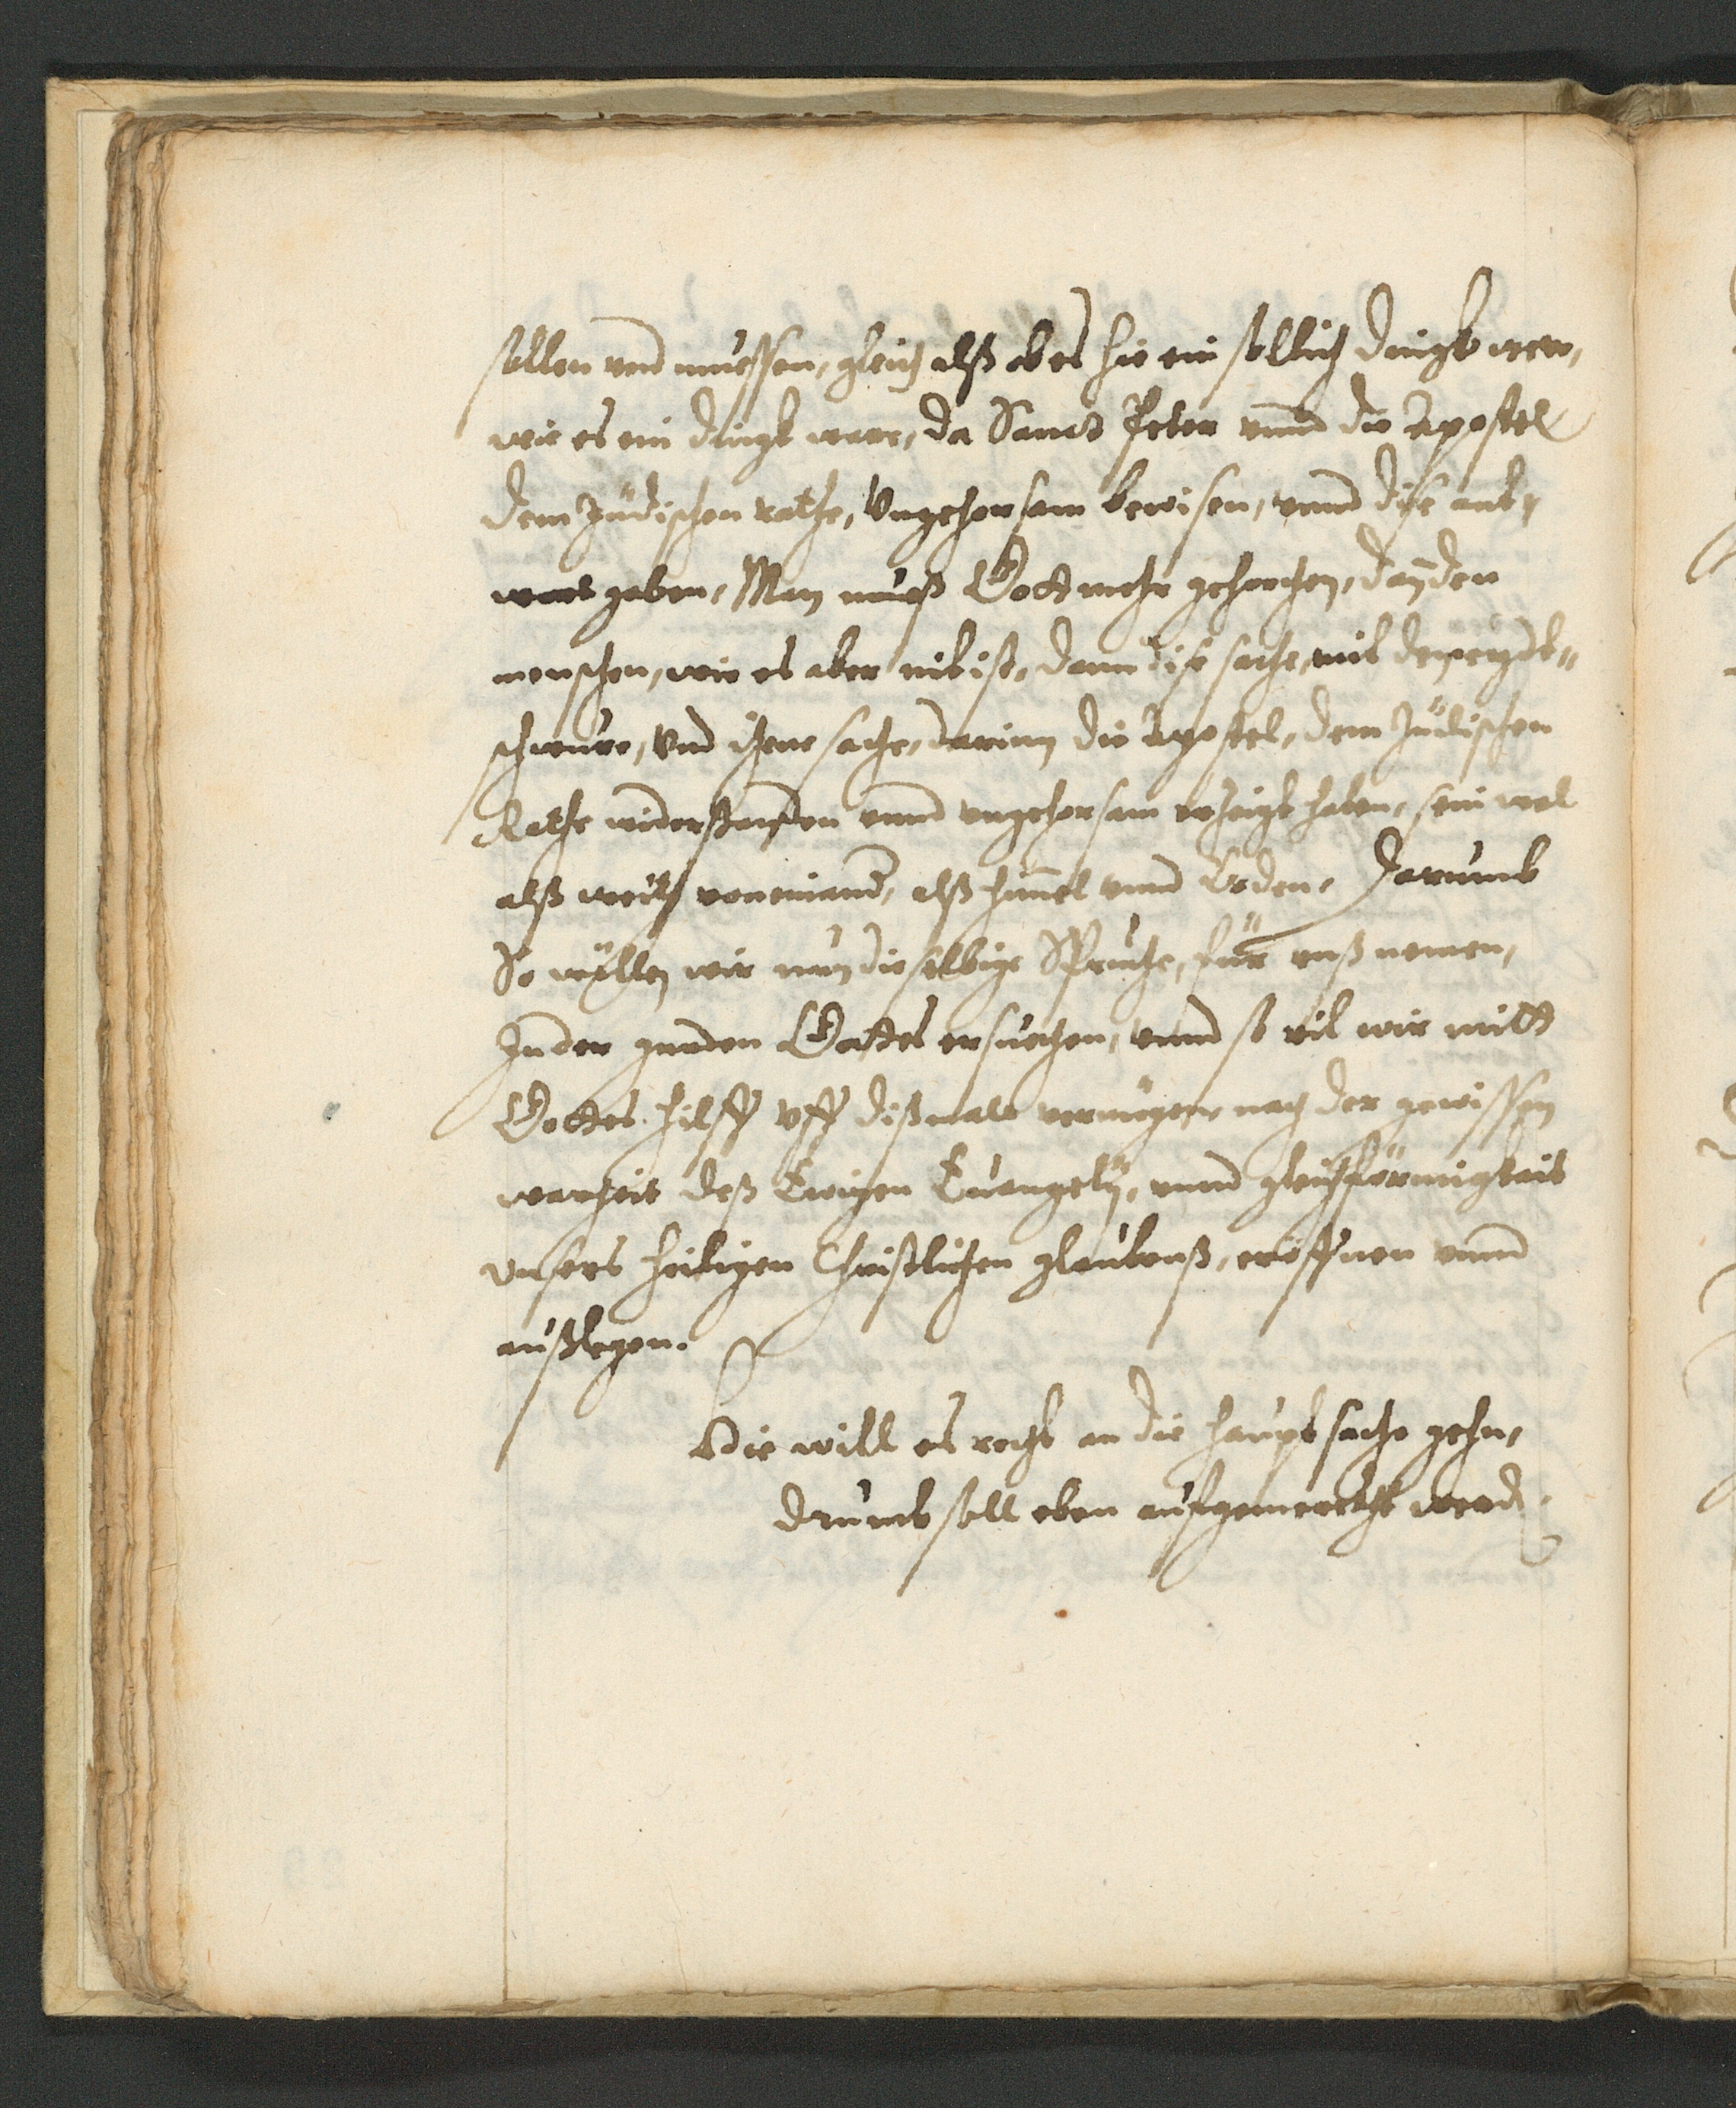 sollen vnd muessen, gleich alß ob es hie ein sollich dingk wer,
wie es ein dingk ware, da Sanct Peter vnnd die Apostel
dem Jüdischen rathe, Vngehorsam bewisen, vnnd dise ant,,
wort gaben, Man mueß Gott mehr gehorchen, dan den
menschen, wie es aber nit ist, dann dise sache, mit dem eydt,,
schwure, vnd ihene sache, darinn die Apostel, dem Jüdischen
Rathe widerstanden vnnd vngehorsam erzeigt haben, sein wol
alß weith voneinand, alß himel vnnd Erden. Darumb
So wöllen wir nun dieselbige Spruche, für vnß nemen,
In der gnaden Gottes ersuechen, vnnd so vil wir mitt
Gottes hilff vff dißmale vermögen nach der gewissen
warheit deß Ewigen Euangelij, vnnd gleichförmigkait
vnsers heiligen Christlichen glaubenß, eröffnen vnnd
außlegen.
Hie will es recht an die hauptsache gehn,
drumb soll eben aufgemerckht werd.